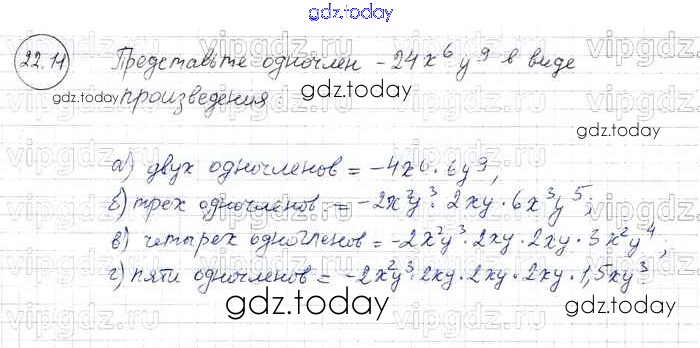 gdz.today
22.11 Представьте одночлен -24x⁶y⁹ в виде
gdz.today произведения
gdz.today
а) двух одночленов = -4x6 · 6y⁹,
б) трех одночленов = -2x²y³ · 2xy · 6x³y⁵;
в) четырех одночленов = -2x²y³ · 2xy · 2xy · 3x²y⁴,
г) пяти одночленов = -2x²y³ · 2xy · 2xy · 2xy · 1,5xy³
gdz.today gdz.today
gdz.today